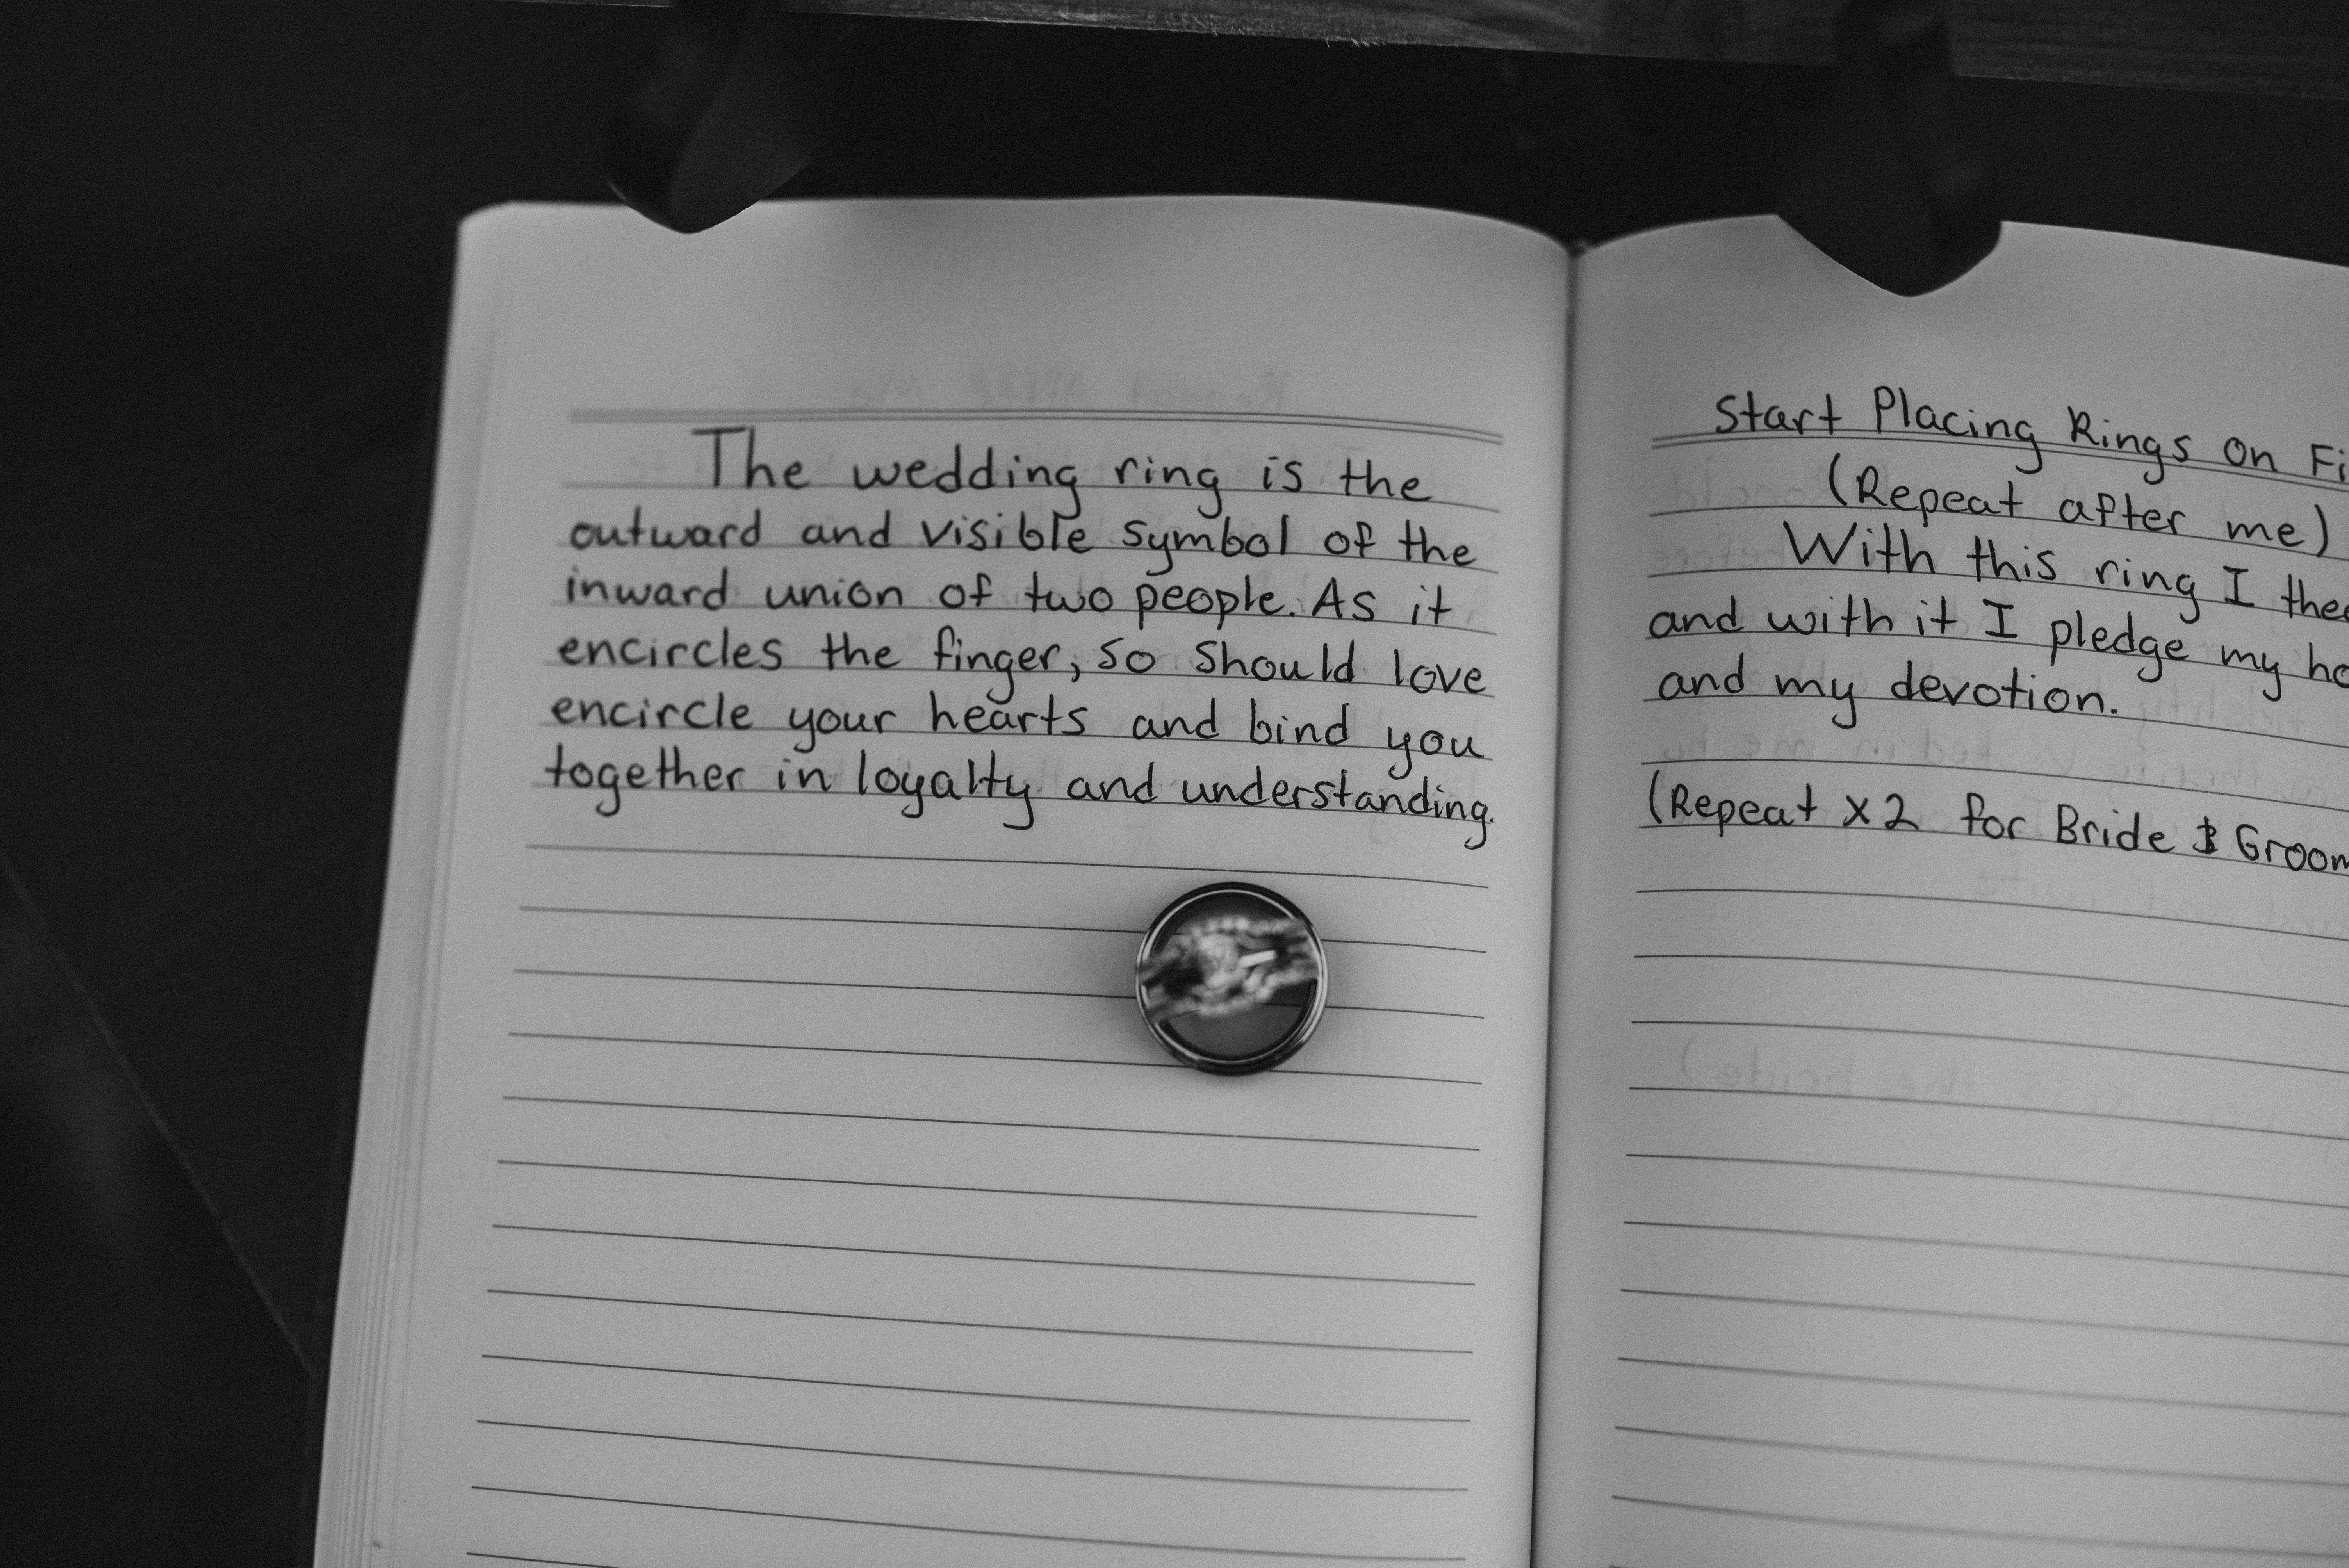 The wedding ring is the
outward and visible symbol of the
inward union of two people. As it
encircles the finger, so should love
encircle your hearts and bind you
together in loyalty and understanding.
Start Placing Rings On
(Repeat after me)
With this ring I
and with it I pledge my
and my devotion.
(Repeat x2 for Bride & Groom